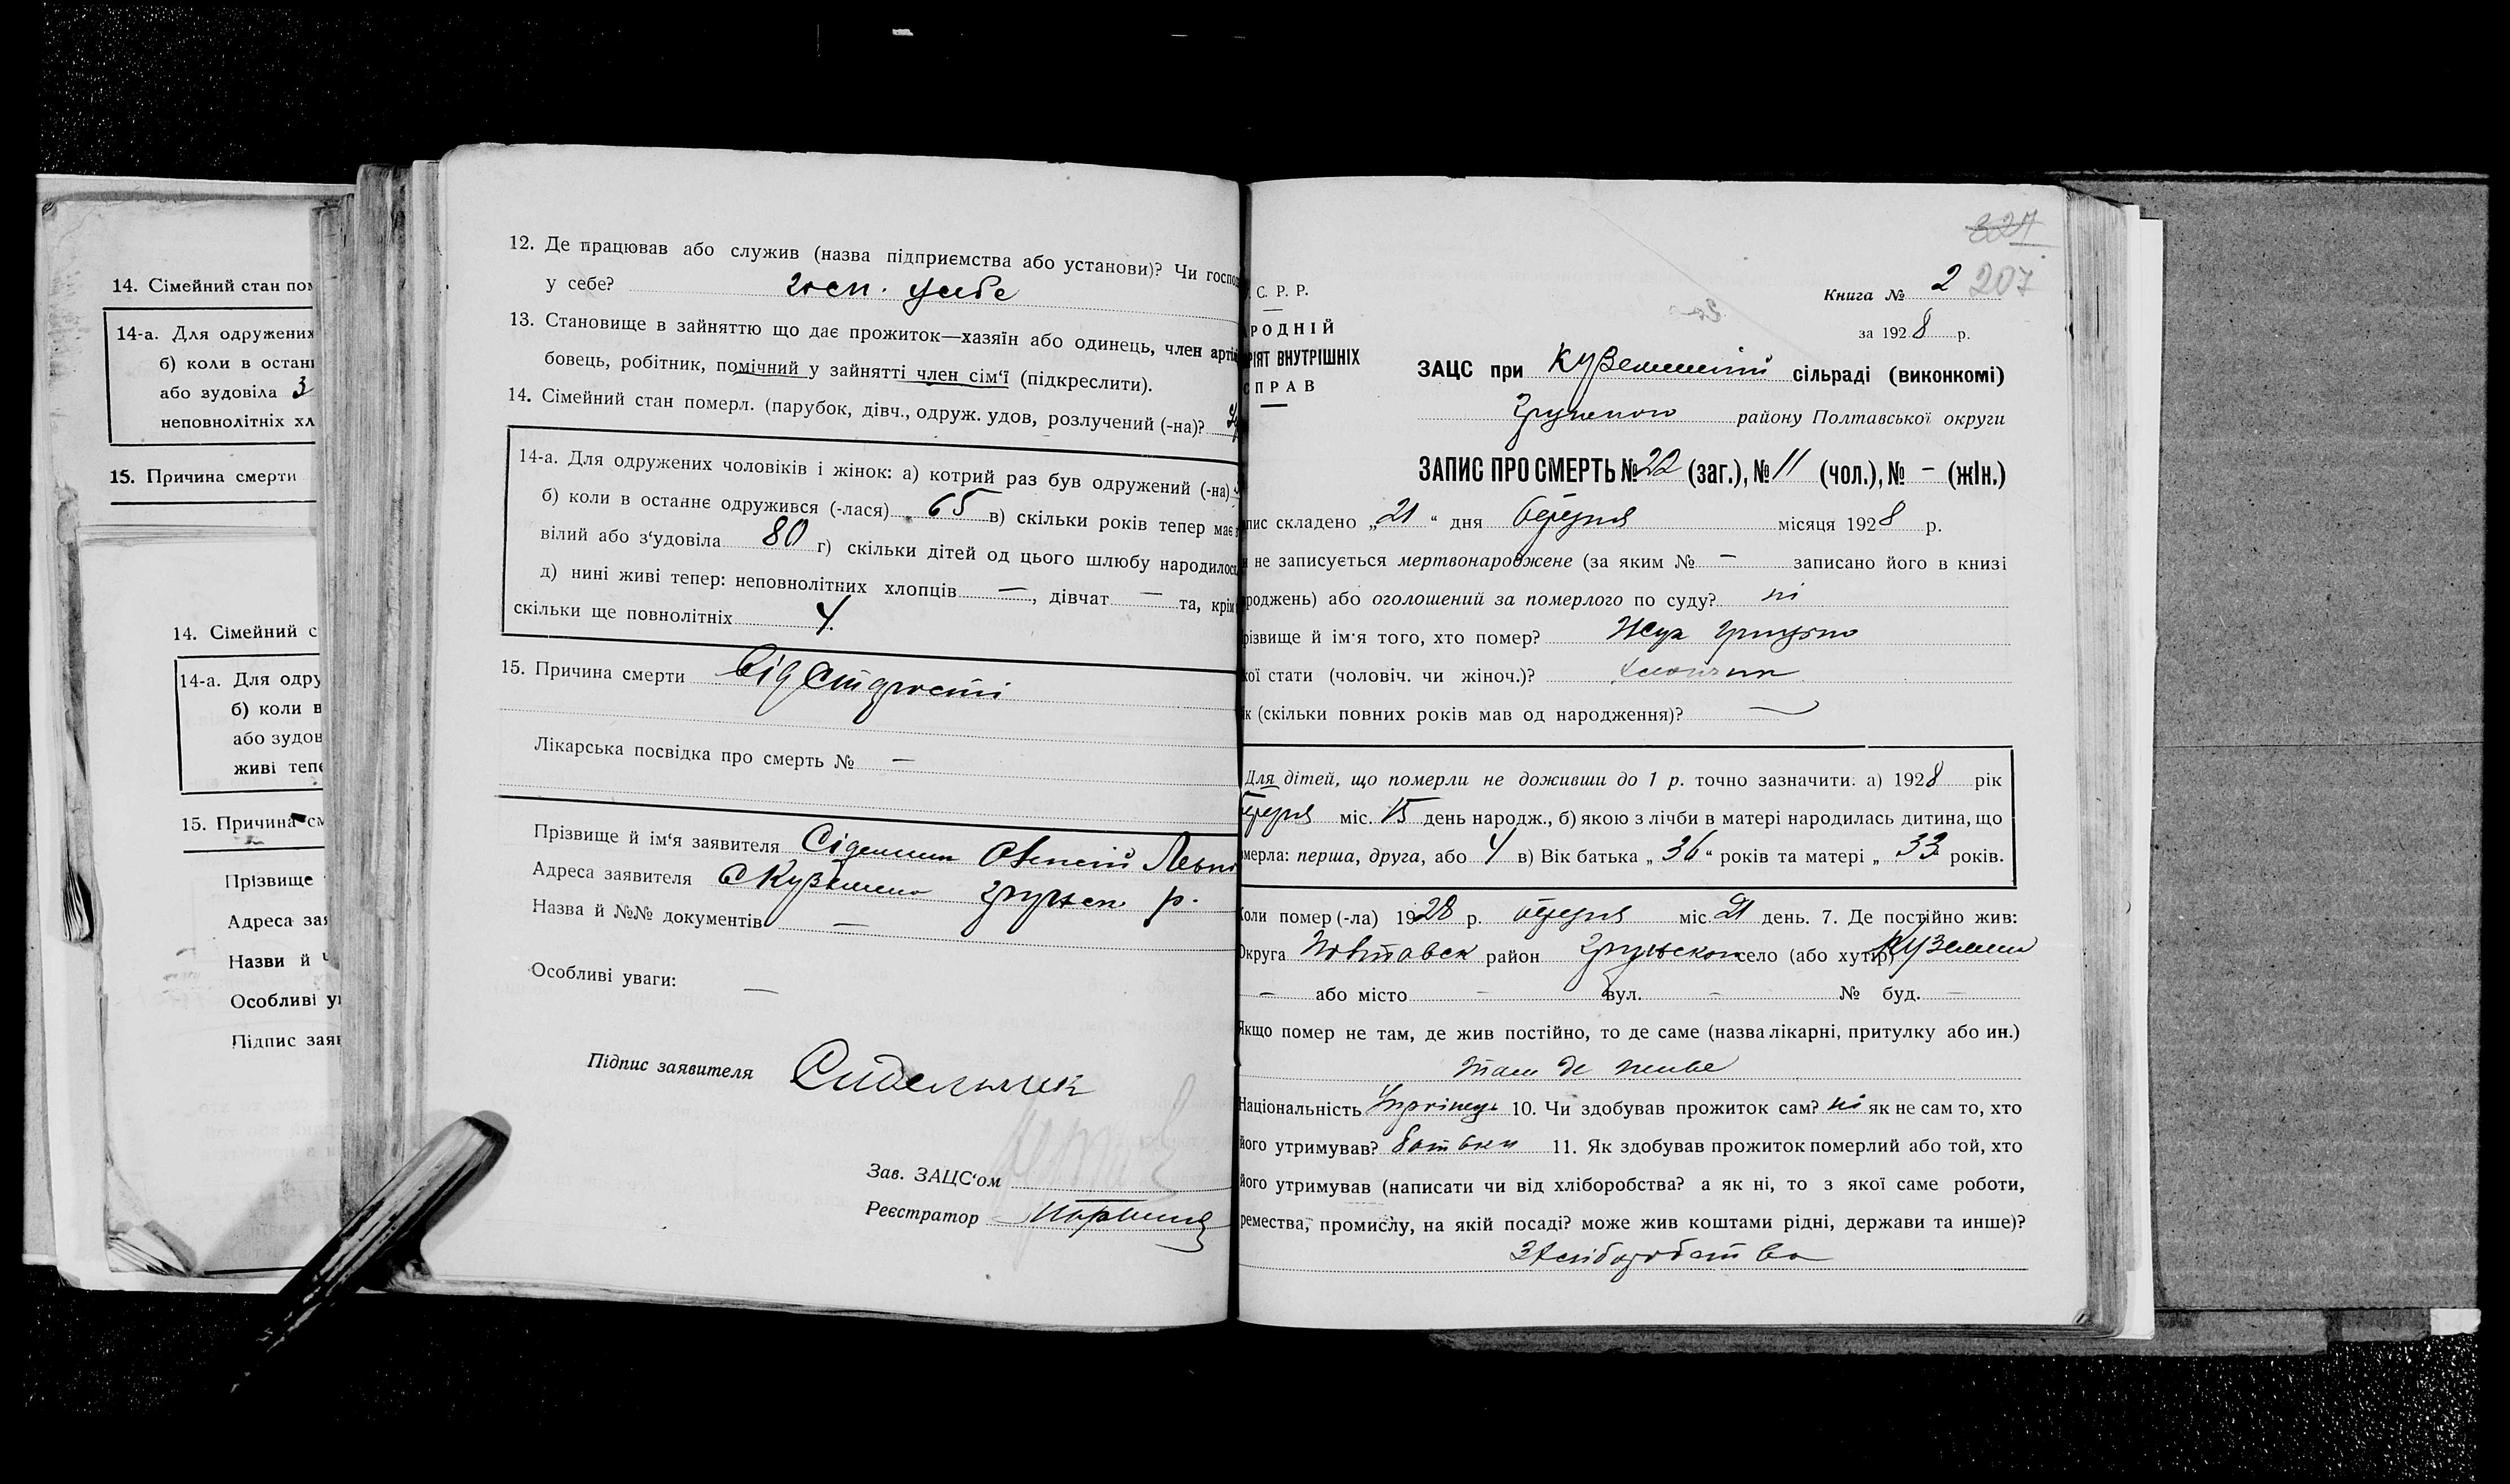 14. Сімейний стан пом
14-а. Для одружених
б) коли в остан
або зудовіла 3
неповнолітніх хл
15. Причина смерти
14. Сімейний с
14-а. Для одру
б) коли в
або зудов
живі тепе
15. Причина см
Прізвище
Адреса зая
Назви й
Особливі у
Підпис заяв
12. Де працював або служив (назва підприємства або установи)? Чи госпо
у себе? госп. у себе
13. Становище в зайняттю що дає прожиток—хазяїн або одинець, член арті
бовець, робітник, помічний у зайнятті член сім'ї (підкреслити).
14. Сімейний стан померл. (парубок, дівч., одруж. удов, розлучений (-на)?
14-а. Для одружених чоловіків і жінок: а) котрий раз був одружений (-на)
б) коли в останнє одружився (-лася) 65 в) скільки років тепер має
вілий або з'удовіла 80 г) скільки дітей од цього шлюбу народилось
д) нині живі тепер: неповнолітних хлопців —, дівчат — та, крім
скільки ще повнолітніх 4.
15. Причина смерти від старости
Лікарська посвідка про смерть № —
Прізвище й ім'я заявителя
Адреса заявителя с Куземин грунськ р.
Назва й №№ документів —
Особливі уваги: —
Підпис заявителя
Зав. ЗАЦС'ом
Реєстратор
327
207
С. Р. Р.
Книга № 2
РОДНІЙ
за 1928 р.
РІЯТ ВНУТРІШНІХ
СПРАВ
ЗАЦС при Куземинській сільраді (виконкомі)
Грунського району Полтавської округи
ЗАПИС ПРО СМЕРТЬ № 22 (заг.), № 11 (чол.), № – (жін.)
пис складено „21" дня березня місяця 1928 р.
не записується мертвонароджене (за яким № — записано його в книзі
роджень) або оголошений за померлого по суду? ні
різвище й ім'я того, хто помер? Жук Грицько
кої стати (чоловіч. чи жіноч.)? хлопчик
ік (скільки повних років мав од народження)? —
Для дітей, що померли не доживши до 1 р. точно зазначити: а) 1928 рік
березня міс. 15 день народж., б) якою з лічби в матері народилась дитина, що
мерла: перша, друга, або 4 в) Вік батька „36" років та матері „33" років.
Коли помер (-ла) 1928 р. березня міс 21 день. 7. Де постійно жив:
Округа Полтавськ район Грунськом село (або хутір) Куземин
— або місто — вул. — № буд. —
Якщо помер не там, де жив постійно, то де саме (назва лікарні, притулку або ин.)
там де живе
Національність Українець 10. Чи здобував прожиток сам? ні як не сам то, хто
його утримував? батьки 11. Як здобував прожиток померлий або той, хто
його утримував (написати чи від хліборобства? а як ні, то з якої саме роботи,
ремества, промислу, на якій посаді? може жив коштами рідні, держави та инше)?
З хліборобства